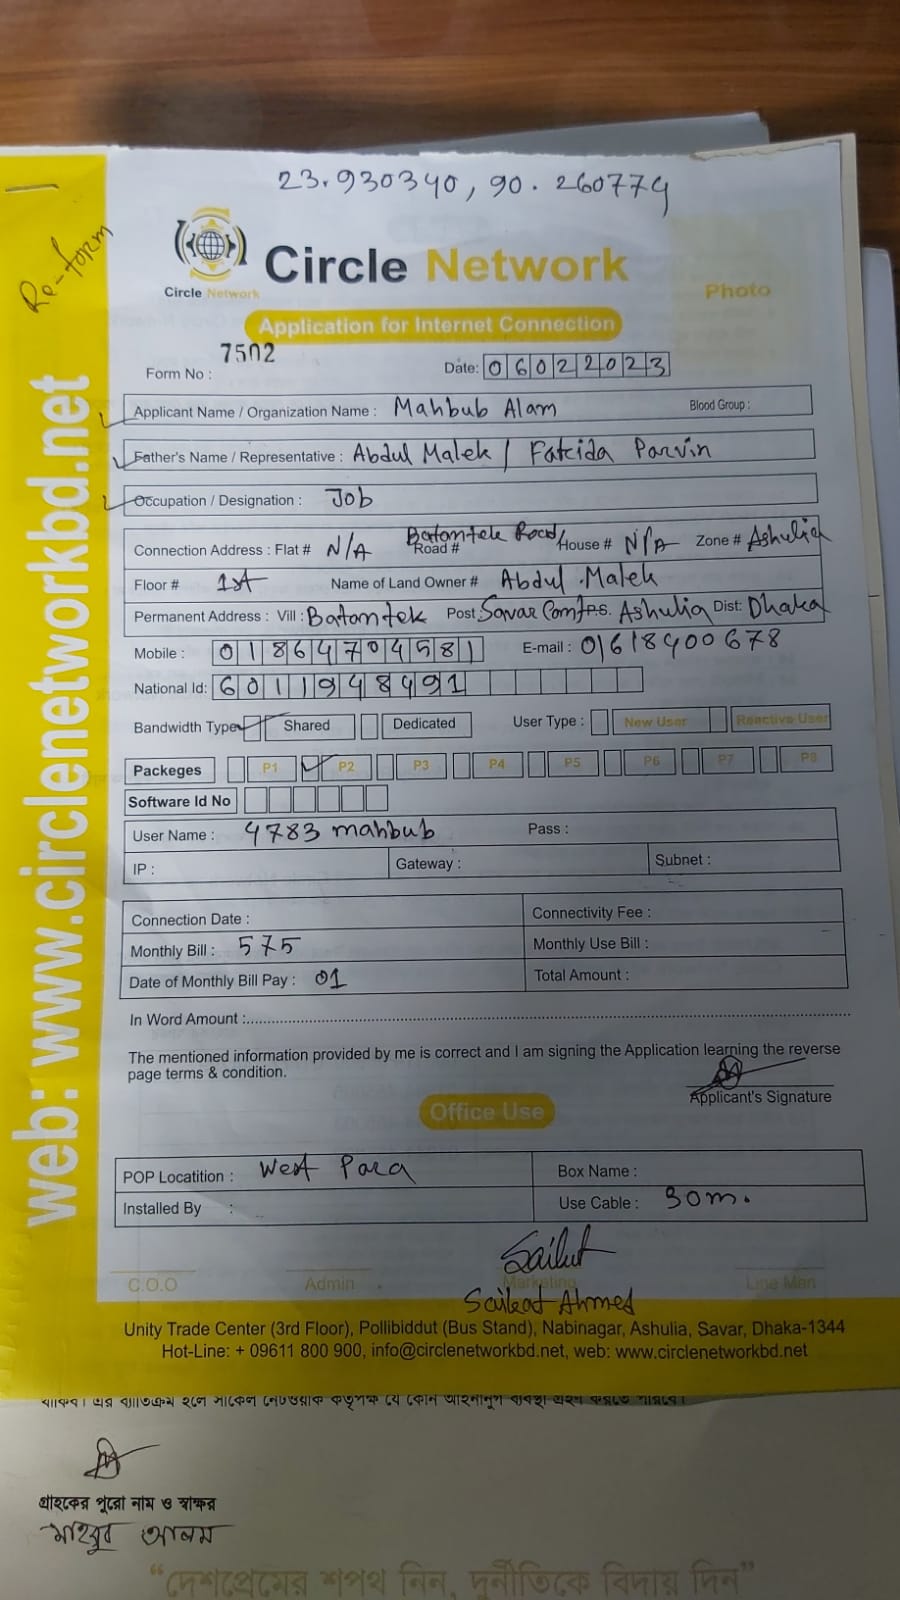 23.930340, 90.260774
Re-form
Circle Network
Circle Network
Photo
Application for Internet Connection
Form No : 7502
Date: 06022023
Applicant Name / Organization Name : Mahbub Alam Blood Group :
Father's Name / Representative : Abdul Malek / Farida Parvin
Occupation / Designation : Job
Connection Address : Flat # N/A Road # Batomtek Road, House # N/A Zone # Ashulia
Floor # 1st Name of Land Owner # Abdul Malek
Permanent Address : Vill : Batomtek Post Savar Cant P.S. Ashulia Dist: Dhaka
Mobile : 01864704581 E-mail : 01618400678
National Id: 6011948491
Bandwidth Type Shared Dedicated User Type : New User Reactive User
Packeges P1 P2 P3 P4 P5 P6 P7 P8
Software Id No
User Name : 4783 mahbub Pass :
IP : Gateway : Subnet :
Connection Date : Connectivity Fee :
Monthly Bill : 575 Monthly Use Bill :
Date of Monthly Bill Pay : 01 Total Amount :
In Word Amount :
The mentioned information provided by me is correct and I am signing the Application learning the reverse
page terms & condition.
Applicant's Signature
Office Use
POP Locatition : West Para Box Name :
Installed By : Use Cable : 30m.
C.O.O Admin Marketing Line Man
Saikat Ahmed
Unity Trade Center (3rd Floor), Pollibiddut (Bus Stand), Nabinagar, Ashulia, Savar, Dhaka-1344
Hot-Line: + 09611 800 900, info@circlenetworkbd.net, web: www.circlenetworkbd.net
web: www.circlenetworkbd.net
থাকিব। এর ব্যতিক্রম হলে সার্কেল নেটওয়ার্ক কর্তৃপক্ষ যে কোন আইনানুগ ব্যবস্থা গ্রহণ করতে পারবে।
গ্রাহকের পুরো নাম ও স্বাক্ষর
মাহবুব আলম
“দেশপ্রেমের শপথ নিন, দুর্নীতিকে বিদায় দিন”